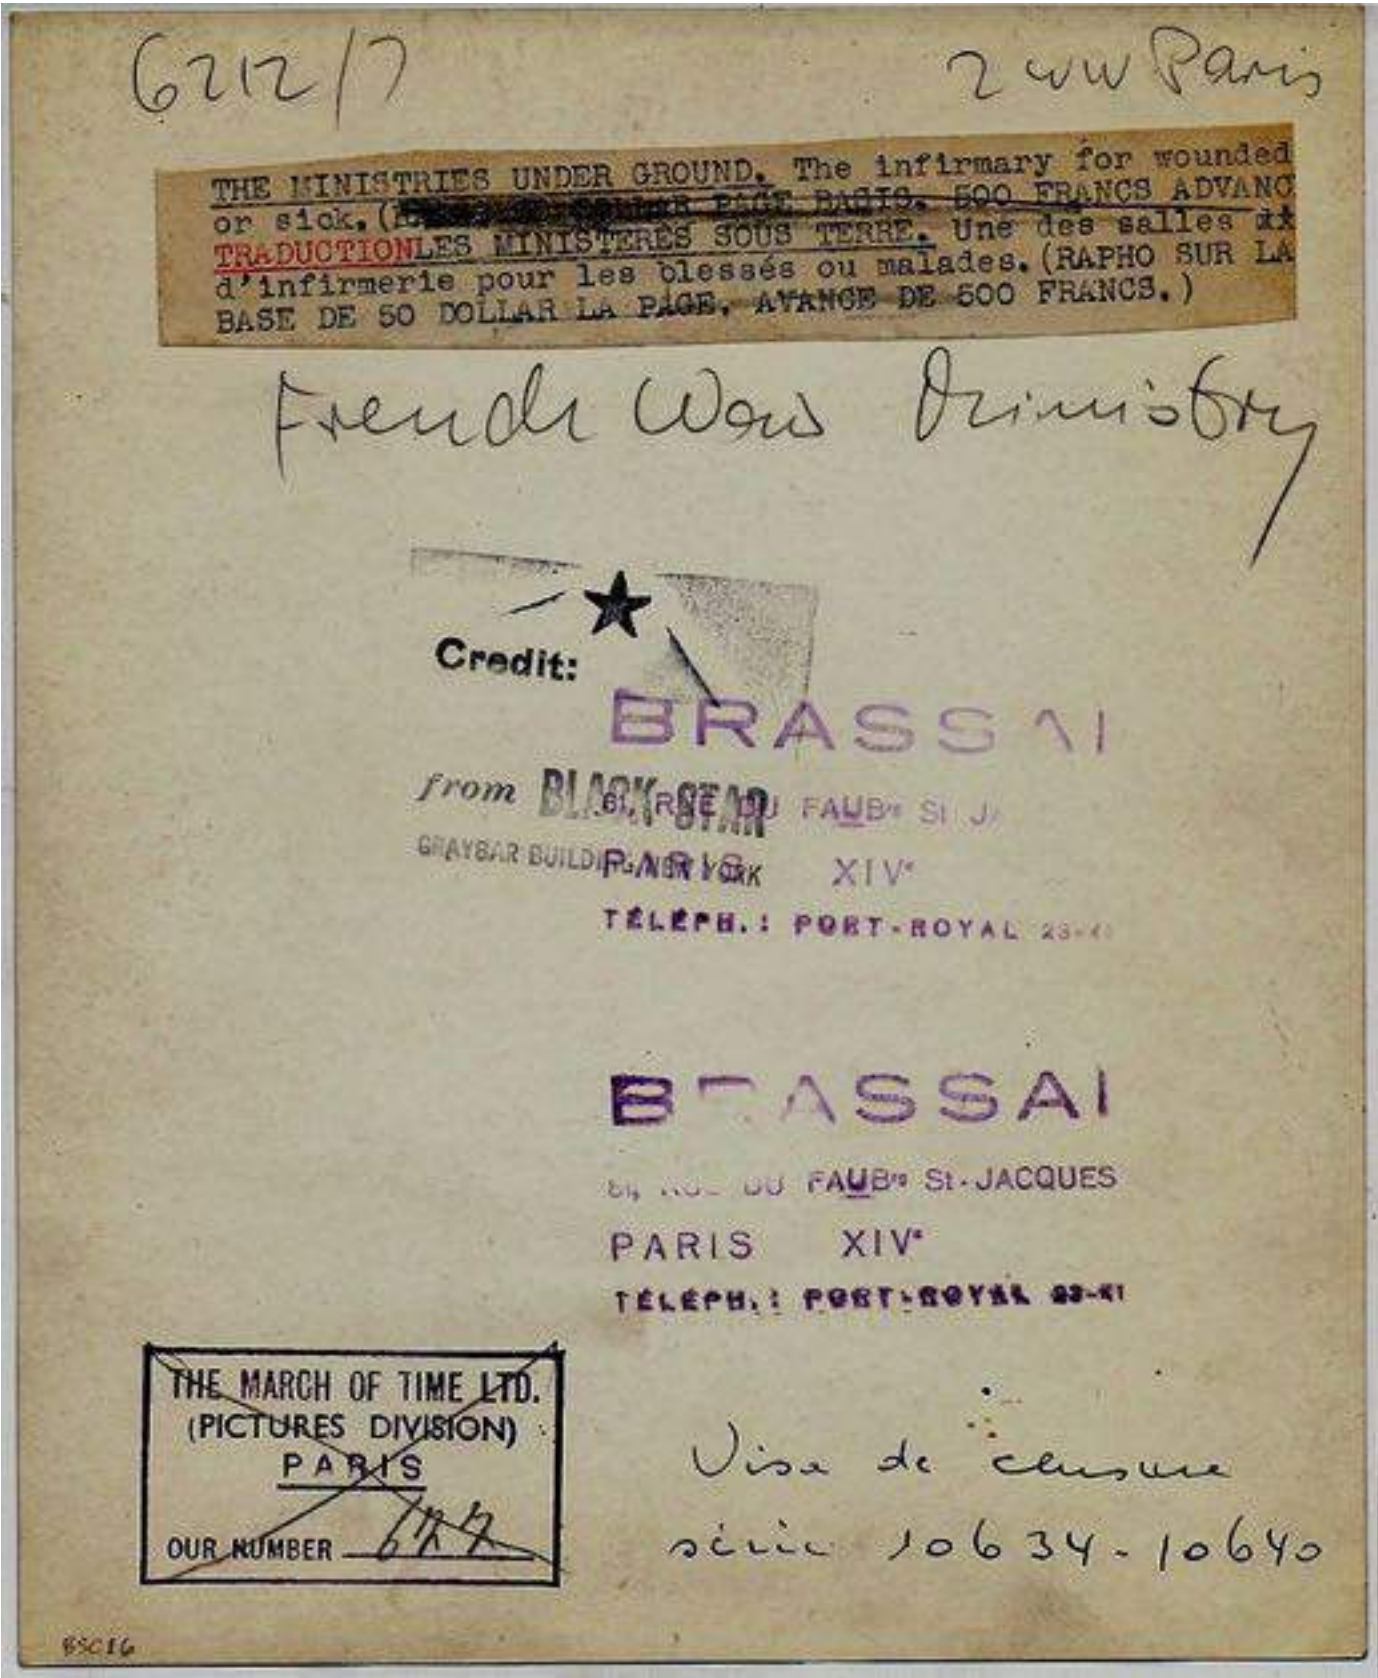 6212/7
2 WW Paris
THE MINISTRIES UNDER GROUND. The infirmary for wounded
or sick. ( DOLLAR PAGE BASIS. 500 FRANCS ADVANC
TRADUCTIONLES MINISTERES SOUS TERRE. Une des salles
d'infirmerie pour les blessés ou malades. (RAPHO SUR LA
BASE DE 50 DOLLAR LA PAGE. AVANCE DE 500 FRANCS.)
French War Ministry
Credit:
BRASSAI
from BLACK STAR
81, RUE DU FAUBrg St J
GRAYBAR BUILDING, NEW YORK
PARIS XIVe
TÉLÉPH. : PORT-ROYAL 23-4
BRASSAI
81, RUE DU FAUBrg St-JACQUES
PARIS XIVe
TÉLÉPH. : PORT-ROYAL 23-41
THE MARCH OF TIME LTD.
(PICTURES DIVISION)
PARIS
OUR NUMBER 677
Visa de censure
série 10634-10640
BSC16